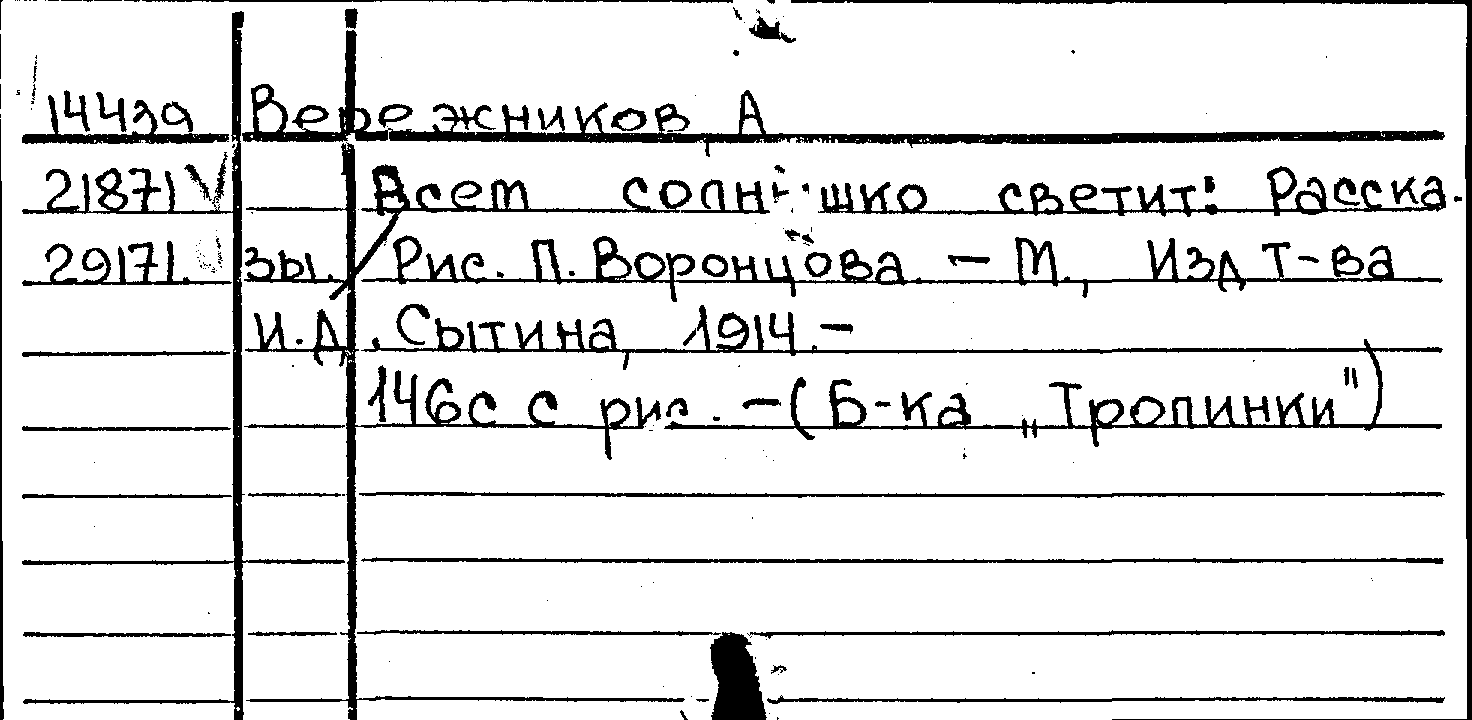 14439 Вережников, А
21871 V Всем солнышко светит: Расска-
29171. зы. / Рис. П. Воронцова. - М., Изд. Т-ва
И. Д. Сытина, 1914. -
146с с рис. - (Б-ка „Тропинки")